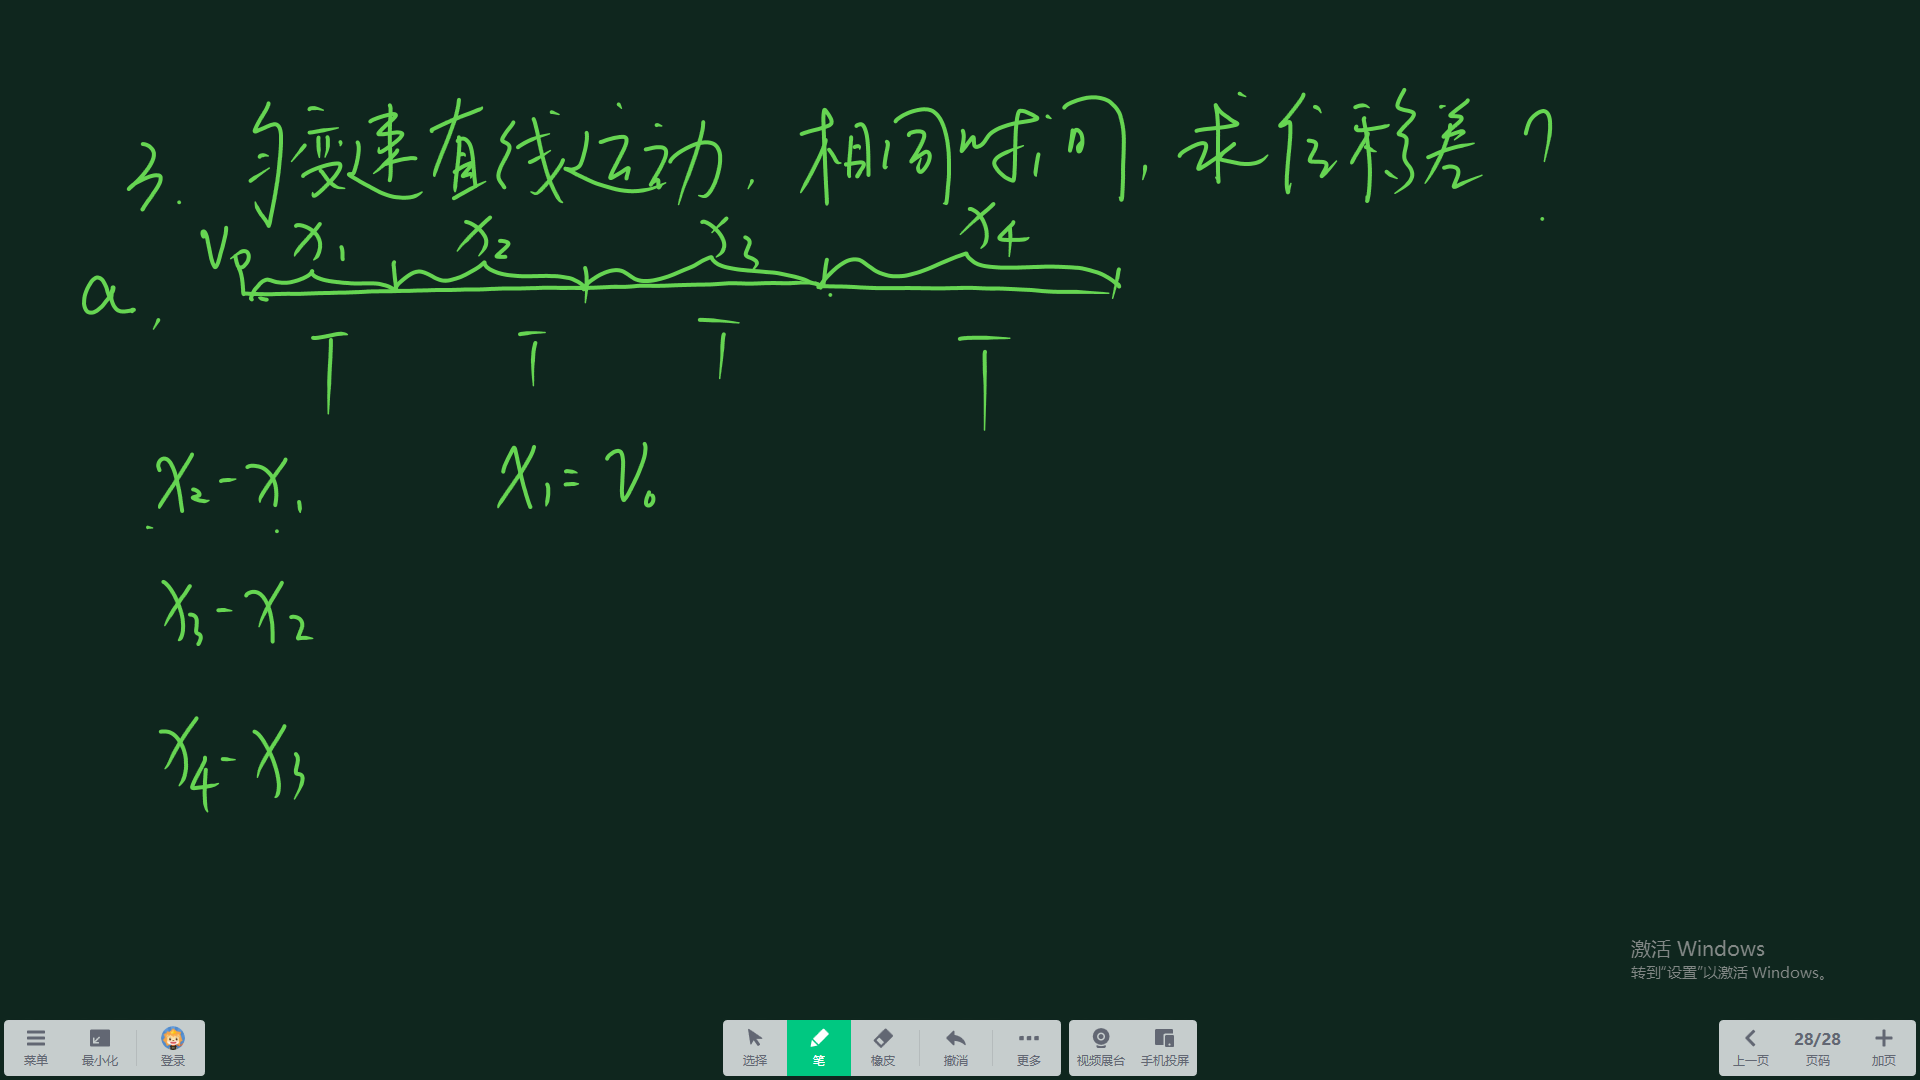 3. 匀变速直线运动, 相同时间, 求位移差?
V₀ x₁ x₂ x₃ x₄
a,
T T T T
x₂-x₁ x₁=v₀
x₃-x₂
x₄-x₃
激活 Windows
转到“设置”以激活 Windows。
菜单 最小化 登录 选择 笔 橡皮 撤消 更多 视频展台 手机投屏 上一页 28/28 页码 加页